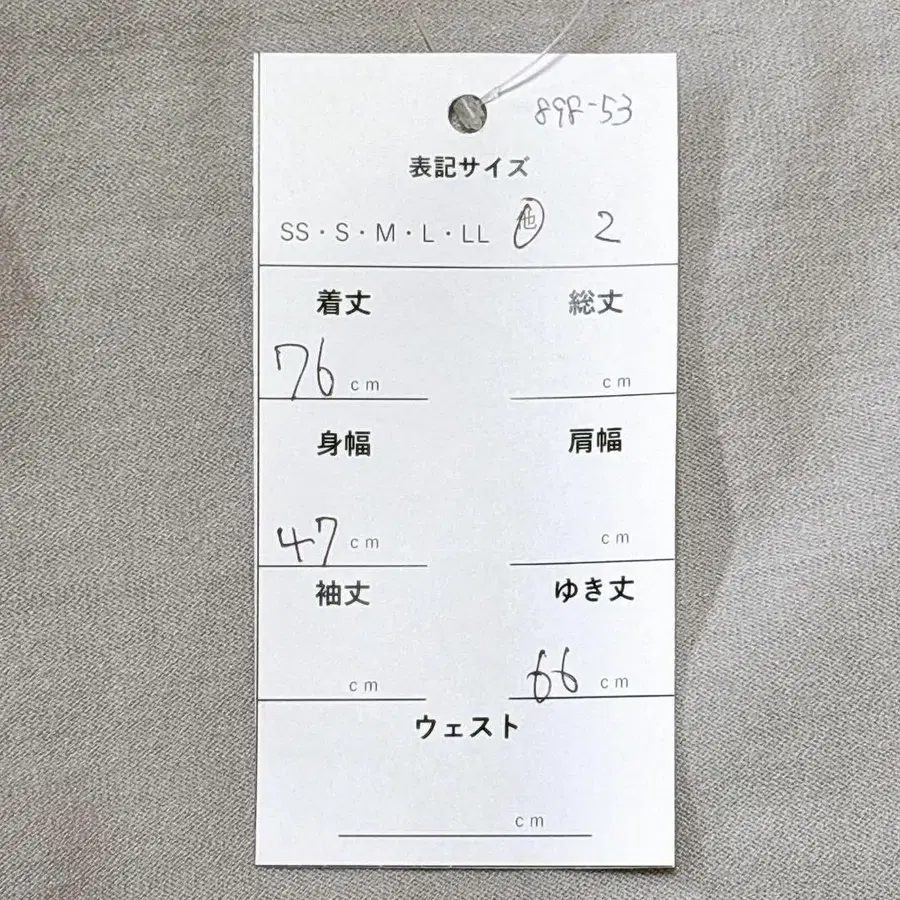 898-53
表記サイズ
SS・S・M・L・LL 他 2
着丈 総丈
76 cm cm
身幅 肩幅
47 cm cm
袖丈 ゆき丈
cm 66 cm
ウェスト
cm